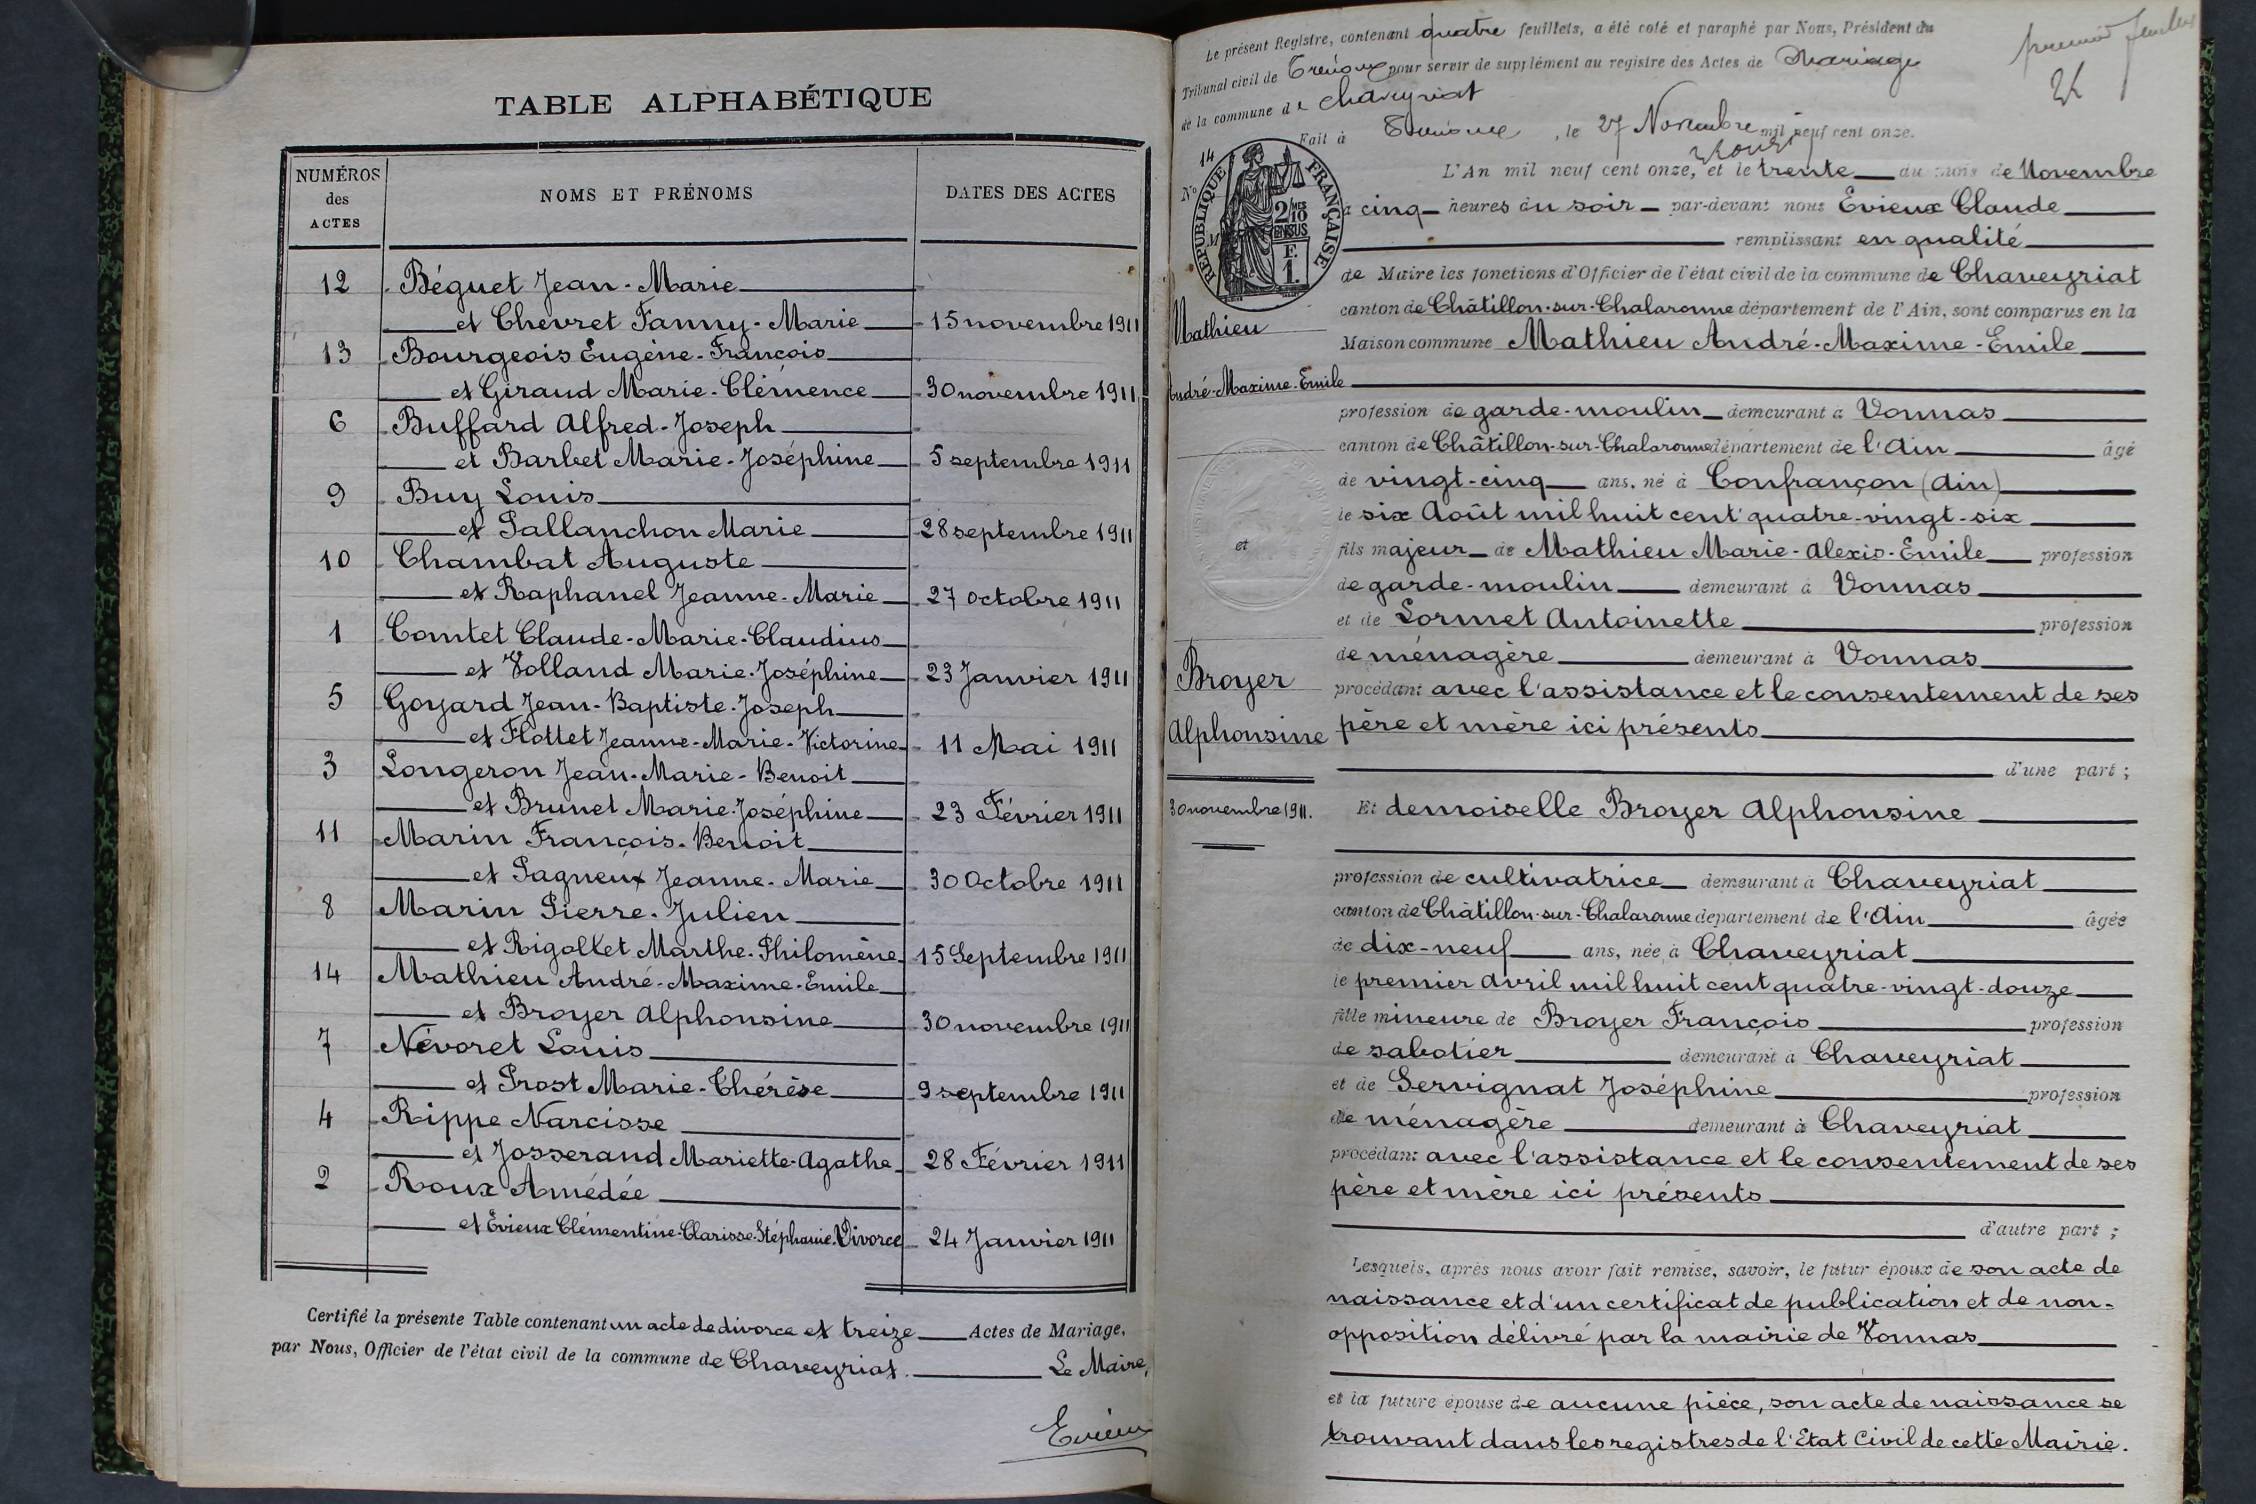 TABLE ALPHABÉTIQUE
NUMÉROS des ACTES
NOMS ET PRÉNOMS
DATES DES ACTES
12 Béguet Jean-Marie
et Chevret Fanny-Marie 15 novembre 1911
13 Bourgeois Eugène-François
et Giraud Marie-Clémence 30 novembre 1911
6 Buffard Alfred-Joseph
et Barbet Marie-Joséphine 5 septembre 1911
9 Buy Louis
et Pallanchon Marie 28 septembre 1911
10 Chambat Auguste
et Raphanel Jeanne-Marie 27 octobre 1911
1 Comtet Claude-Marie-Claudius
et Volland Marie-Joséphine 23 Janvier 1911
5 Goyard Jean-Baptiste-Joseph
et Flottet Jeanne-Marie-Victorine 11 Mai 1911
3 Longeron Jean-Marie-Benoit
et Brunet Marie-Joséphine 23 Février 1911
11 Marin François-Benoit
et Pagneux Jeanne-Marie 30 Octobre 1911
8 Marin Pierre-Julien
et Rigollet Marthe-Philomène 15 Septembre 1911
14 Mathieu André-Maxime-Emile
et Broyer Alphonsine 30 novembre 1911
7 Névoret Louis
et Prost Marie-Thérèse 9 septembre 1911
4 Rippe Narcisse
et Josserand Mariette-Agathe 28 Février 1911
2 Roux Amédée
et Evieux Clémentine-Clarisse-Stéphanie. Divorce 24 Janvier 1911
Certifié la présente Table contenant un acte de divorce et treize Actes de Mariage,
par Nous, Officier de l'état civil de la commune de Chaveyriat. Le Maire,
Evieux
Le présent Registre, contenant quatre feuillets, a été coté et paraphé par Nous, Président du
Tribunal civil de Trévoux pour servir de supplément au registre des Actes de Mariage
de la commune de Chaveyriat
premier feuillet
Fait à Trévoux, le 27 Novembre mil neuf cent onze.
N° 14
RÉPUBLIQUE FRANÇAISE
2/10 MES
EN SUS
F.
1.
M
Mathieu
André-Maxime-Emile
et
Broyer
Alphonsine
30 novembre 1911.
L'An mil neuf cent onze, et le trente du mois de Novembre
à cinq heures du soir par-devant nous Evieux Claude
remplissant en qualité
de Maire les fonctions d'Officier de l'état civil de la commune de Chaveyriat
canton de Châtillon-sur-Chalaronne département de l'Ain, sont comparus en la
Maison commune Mathieu André-Maxime-Emile
profession de garde-moulin demeurant à Vonnas
canton de Châtillon-sur-Chalaronne département de l'Ain âgé
de vingt-cinq ans, né à Confrançon (Ain)
le six Août mil huit cent quatre-vingt-six
fils majeur de Mathieu Marie-Alexis-Emile profession
de garde-moulin demeurant à Vonnas
et de Lormet Antoinette profession
de ménagère demeurant à Vonnas
procédant avec l'assistance et le consentement de ses
père et mère ici présents
d'une part;
Et demoiselle Broyer Alphonsine
profession de cultivatrice demeurant à Chaveyriat
canton de Châtillon-sur-Chalaronne département de l'Ain âgée
de dix-neuf ans, née à Chaveyriat
le premier Avril mil huit cent quatre-vingt-douze
fille mineure de Broyer François profession
de sabotier demeurant à Chaveyriat
et de Servignat Joséphine profession
de ménagère demeurant à Chaveyriat
procédant avec l'assistance et le consentement de ses
père et mère ici présents
d'autre part;
Lesquels, après nous avoir fait remise, savoir, le futur époux de son acte de
naissance et d'un certificat de publication et de non-
opposition délivré par la mairie de Vonnas
et la future épouse de aucune pièce, son acte de naissance se
trouvant dans les registres de l'Etat Civil de cette Mairie.